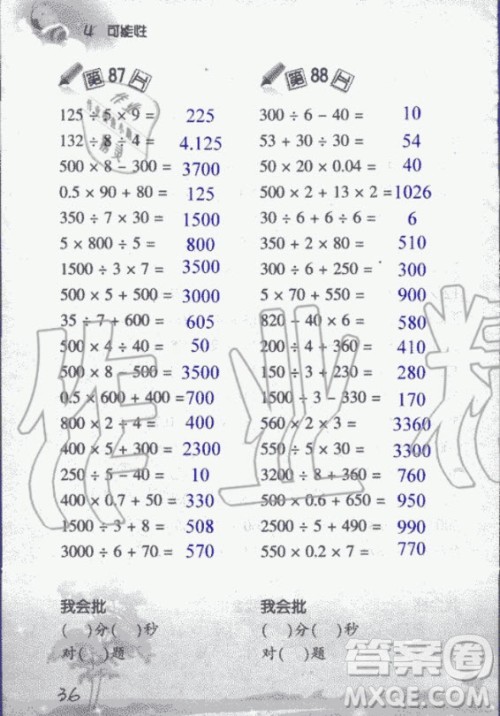 4 可能性
第87回
125 ÷ 5 × 9 = 225
132 ÷ 8 ÷ 4 = 4.125
500 × 8 − 300 = 3700
0.5 × 90 + 80 = 125
350 ÷ 7 × 30 = 1500
5 × 800 ÷ 5 = 800
1500 ÷ 3 × 7 = 3500
500 × 5 + 500 = 3000
35 ÷ 7 + 600 = 605
500 × 4 ÷ 40 = 50
500 × 8 − 500 = 3500
0.5 × 600 + 400 = 700
800 × 2 ÷ 4 = 400
400 × 5 + 300 = 2300
250 ÷ 5 ÷ 5 = 10
400 × 0.7 + 50 = 330
1500 ÷ 3 + 8 = 508
3000 ÷ 6 + 70 = 570
我会批
( )分( )秒
对( )题
第88回
300 ÷ 6 − 40 = 10
53 + 30 ÷ 30 = 54
50 × 20 × 0.04 = 40
500 × 2 + 13 × 2 = 1026
30 ÷ 6 ÷ 6 = 6
350 + 2 × 80 = 510
300 ÷ 6 + 250 = 300
5 × 70 + 550 = 900
820 − 40 × 6 = 580
200 ÷ 4 + 360 = 410
150 ÷ 3 + 230 = 280
1500 ÷ 3 − 330 = 170
560 × 2 × 3 = 3360
550 ÷ 5 × 30 = 3300
3200 ÷ 8 + 360 = 760
500 × 0.6 + 650 = 950
2500 ÷ 5 + 490 = 990
550 × 0.2 × 7 = 770
我会批
( )分( )秒
对( )题
36
作业精
答案圈
MXQE.COM